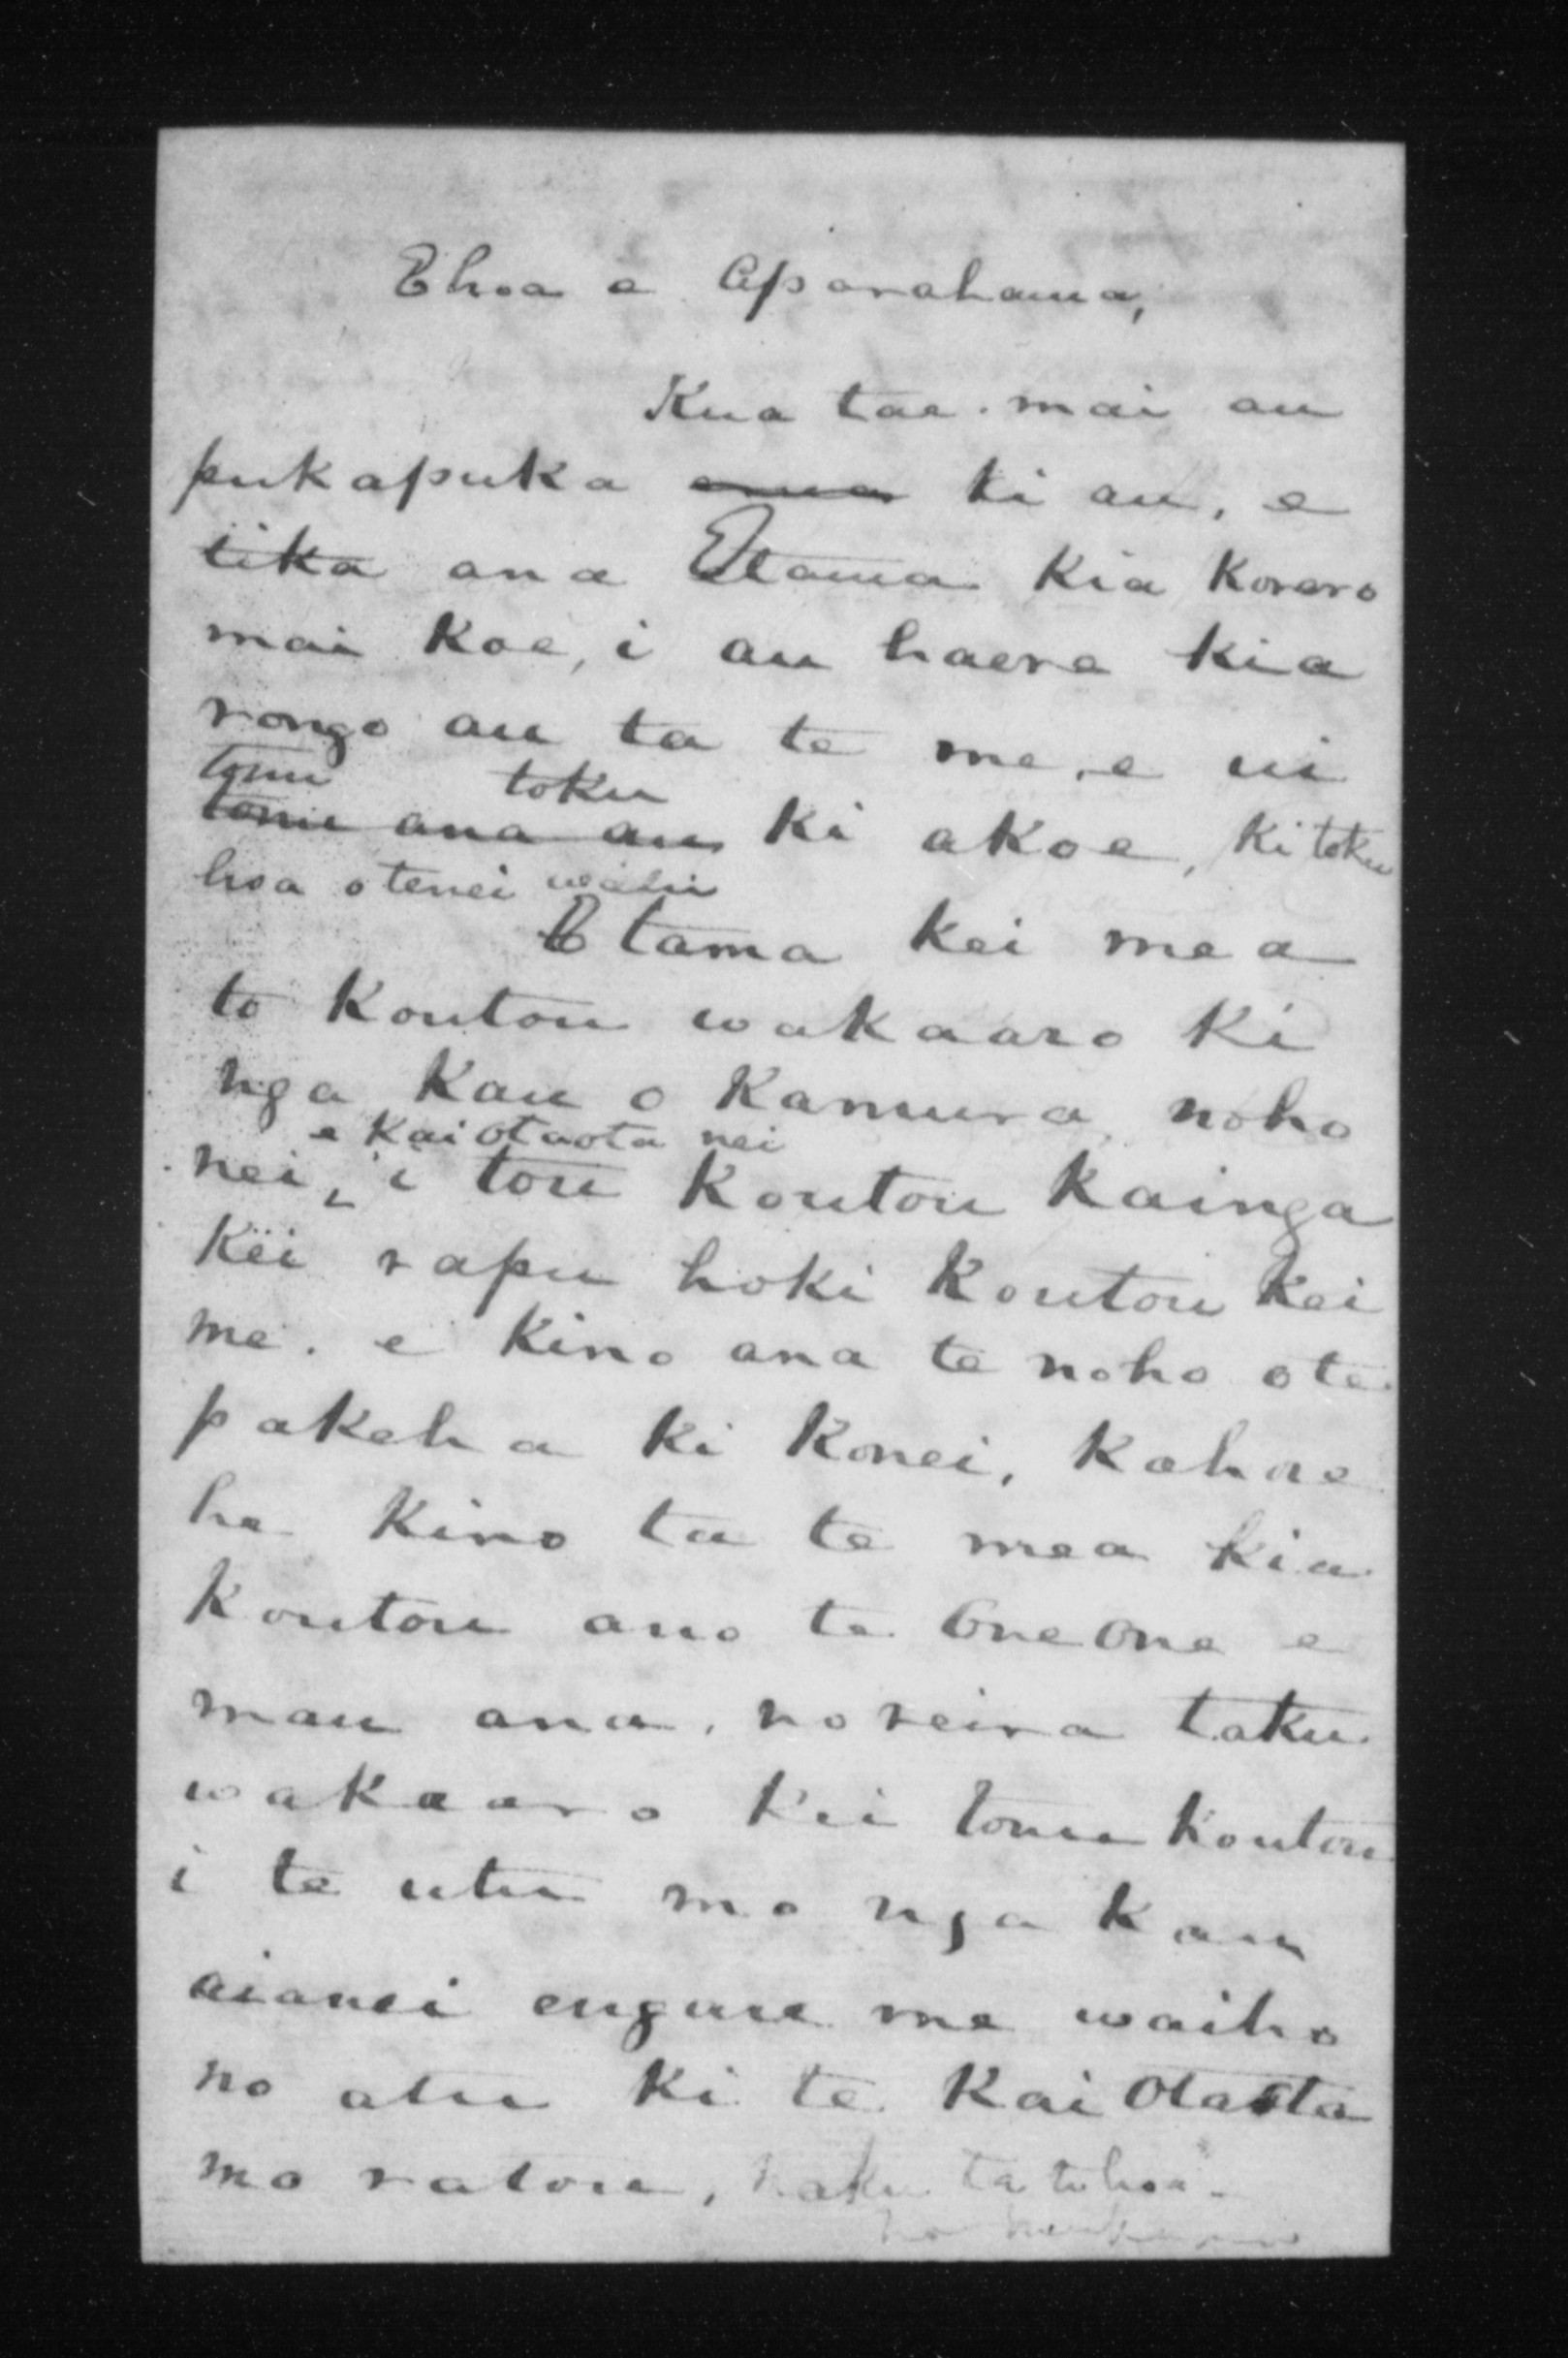 Ehoa e Aparahama,
Kua tae mai au
pukapuka ki au, e
tika ana Etama kia Korero
mai Koe, i au haere kia
rongo au ta te me, e ui
tonu toku
tonu ana au ki akoe, ki toku
hoa o tenei wahi
E tama kei mea
to Koutou wakaaro Ki
nga Kau o Kamura noho
e Kai otaota nei
nei, i tou Koutou Kainga
Kei rapu hoki Koutou Kei
me. e Kino ana te noho o te
pakeha Ki Konei, Kahae
he Kino ta te mea kia
Koutou ano te One One e
mau ana, no reira taku
wakaaro Kei tonu Koutou
i te utu mo nga Kau
aianei engari me waiho
no atu Ki te Kai Otaota
mo ratou, naku ta to hoa.